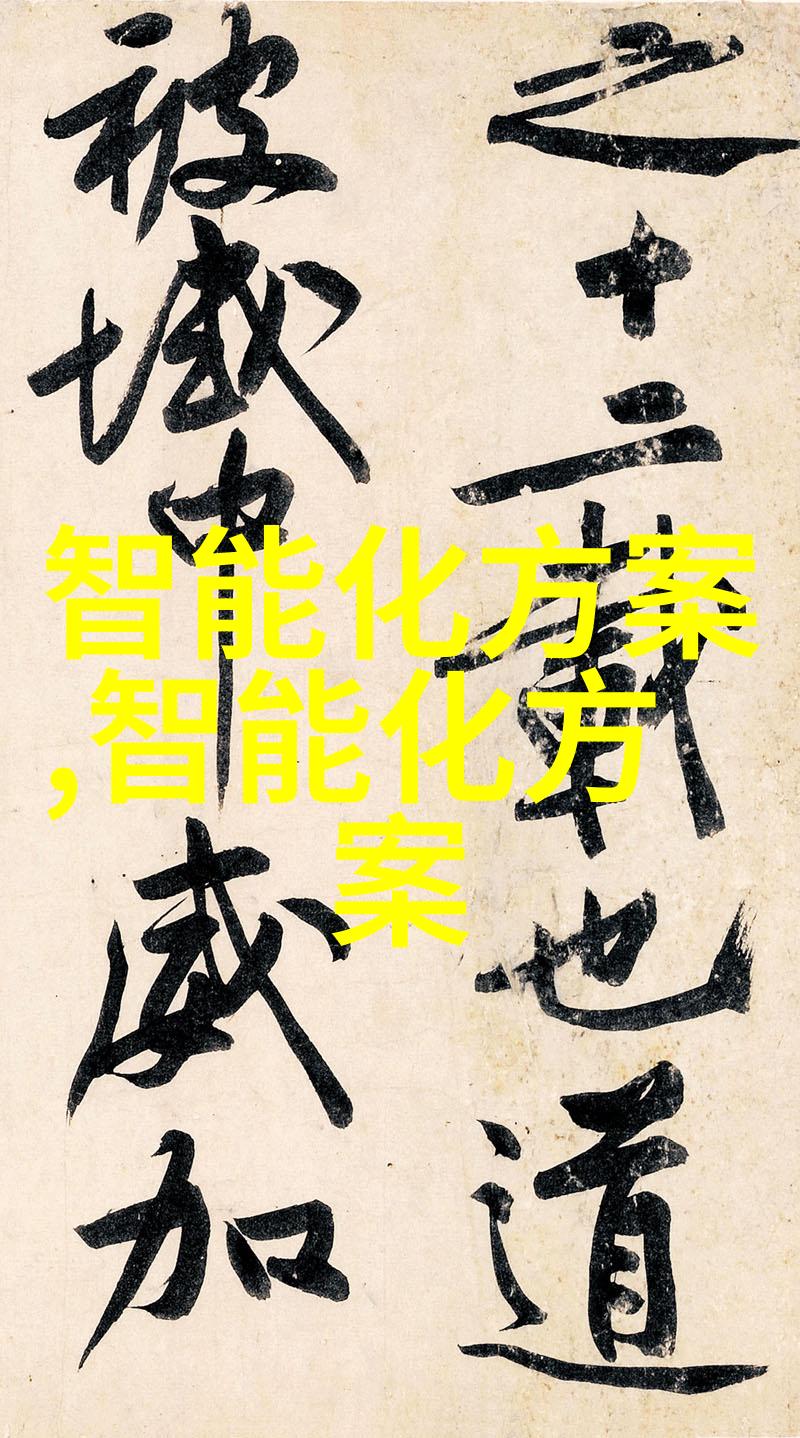 之十二載也道
被域中威加
智能化方案
,智能化方
案